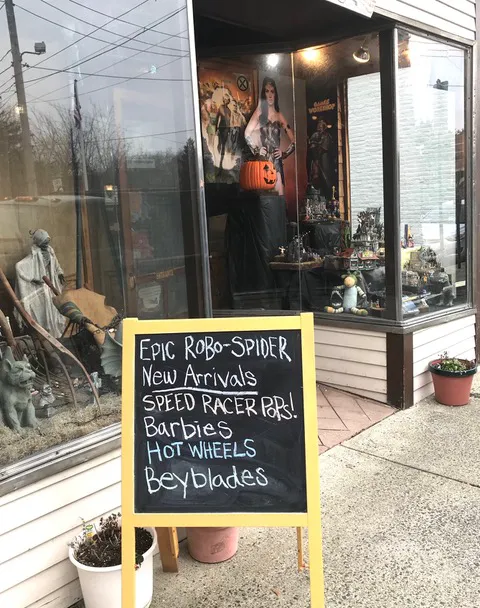 EPIC ROBO-SPIDER
New Arrivals
SPEED RACER POPS!
Barbies
HOT WHEELS
Beyblades
GAMES WORKSHOP